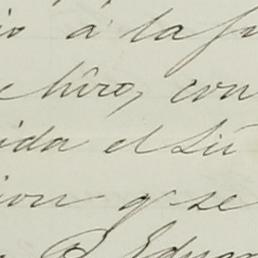 io á la fu
e hizo, con
ida el Lii
ion q̃ se
D. Eduar